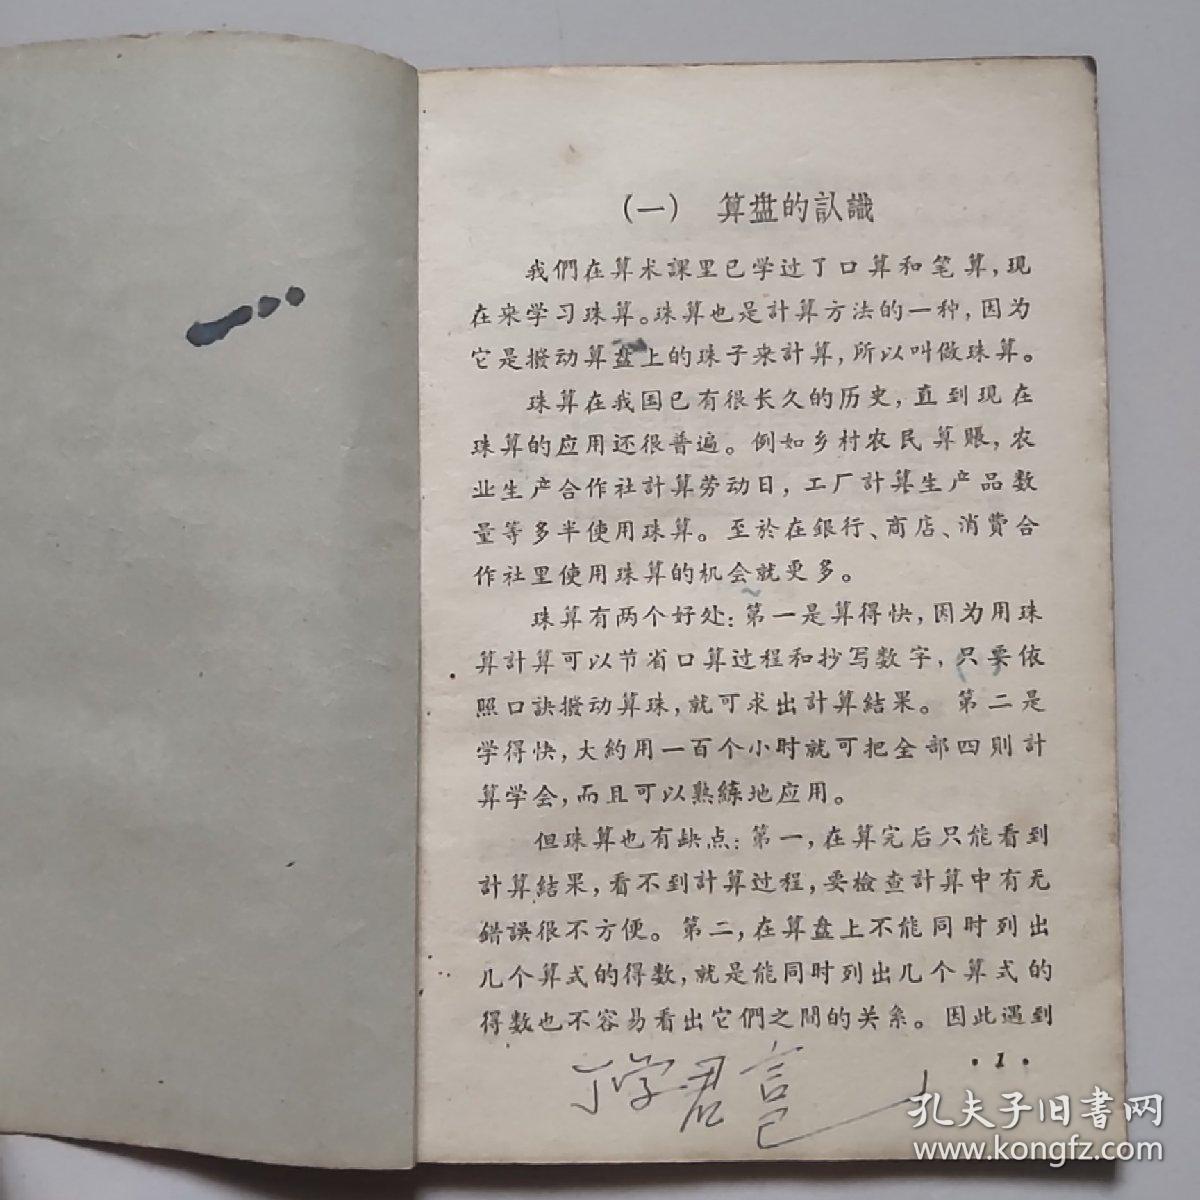 （一） 算盘的訊識
我們在算术課里已学过了口算和笔算，现
在来学习珠算。珠算也是計算方法的一种，因为
它是撥动算盘上的珠子来計算，所以叫做珠算。
珠算在我国已有很长久的历史，直到现在
珠算的应用还很普遍。例如乡村农民算賬，农
业生产合作社計算劳动日，工厂計算生产品数
量等多半使用珠算。至於在銀行、商店、消費合
作社里使用珠算的机会就更多。
珠算有两个好处：第一是算得快，因为用珠
算計算可以节省口算过程和抄写数字，只要依
照口訣撥动算珠，就可求出計算結果。第二是
学得快，大約用一百个小时就可把全部四則計
算学会，而且可以熟練地应用。
但珠算也有缺点：第一，在算完后只能看到
計算結果，看不到計算过程，要檢查計算中有无
錯誤很不方便。第二，在算盘上不能同时列出
几个算式的得数，就是能同时列出几个算式的
得数也不容易看出它們之間的关系。因此遇到
·1·
孔夫子旧书网
www.kongfz.com